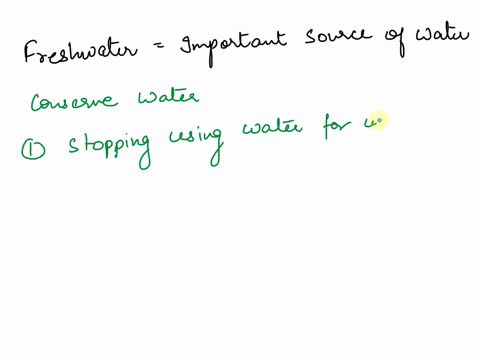 Freshwater = Important source of water
Conserve water
① Stopping using water for